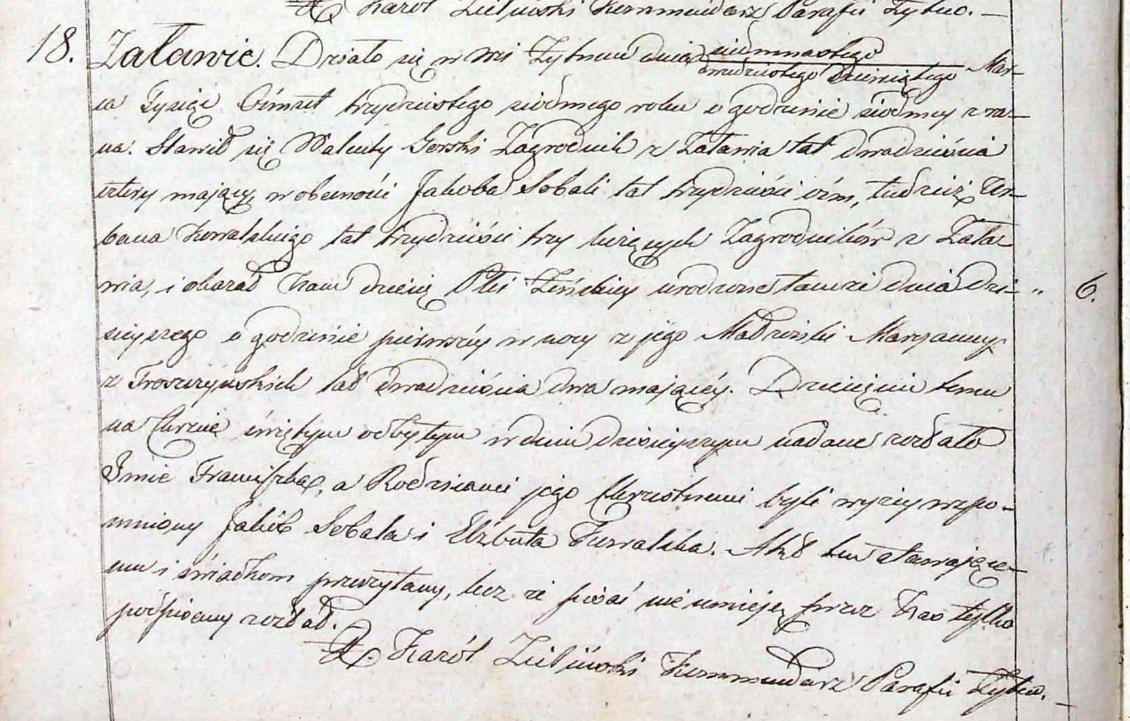 X Karól Zieliński Kommendarz Parafii Żytno.—
18. Załawie. Działo się w wsi Żytnem dnia siedmnastego Mar-
dwudziestego dziewiątego
ca Tysiąc Ośmset trzydziestego siódmego roku o godzinie siódmey z ra-
na. Stawił się Walenty Gorski Zagrodnik z Załawia lat dwadzieścia
cztery maiący, w obecności Jakóba Sobali lat trzydzieści ośm, tudzież Ur-
bana Kowalskiego lat trzydzieści trzy liczących Zagrodników z Zała-
wia, i okazał Nam dziecię Płci Żeńskiey urodzone tamże dnia dzi-
sieyszego o godzinie pierwszey w nocy z jego Małżonki Maryanny
z lat dwadzieścia dwa maiącéy. Dziecięciu temu
na Chrzcie świętym odbytym w dniu dzisieyszym nadane zostało
Imie Franciszka, a Rodzicami jego Chrzestnemi byli wyżey wspo-
mniony Jakób Sobala i Elżbieta. Akt ten stawające-
mu i świadkom przeczytany, lecz że pisać nieumieją przez Nas tylko
podpisany został.
X Karól Zieliński Kommendarz Parafii Żytno.—
6.